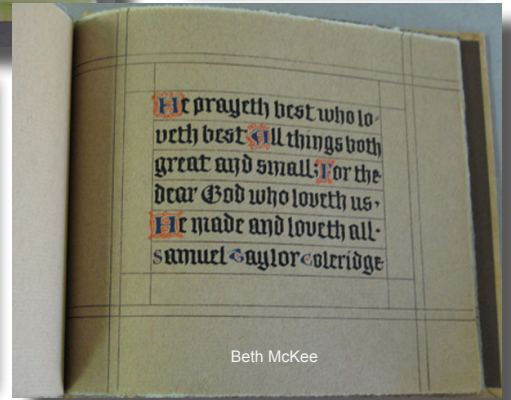 He prayeth best who lo-
veth best All things both
great and small; For the
dear God who loveth us,
He made and loveth all.
Samuel Taylor Coleridge
Beth McKee